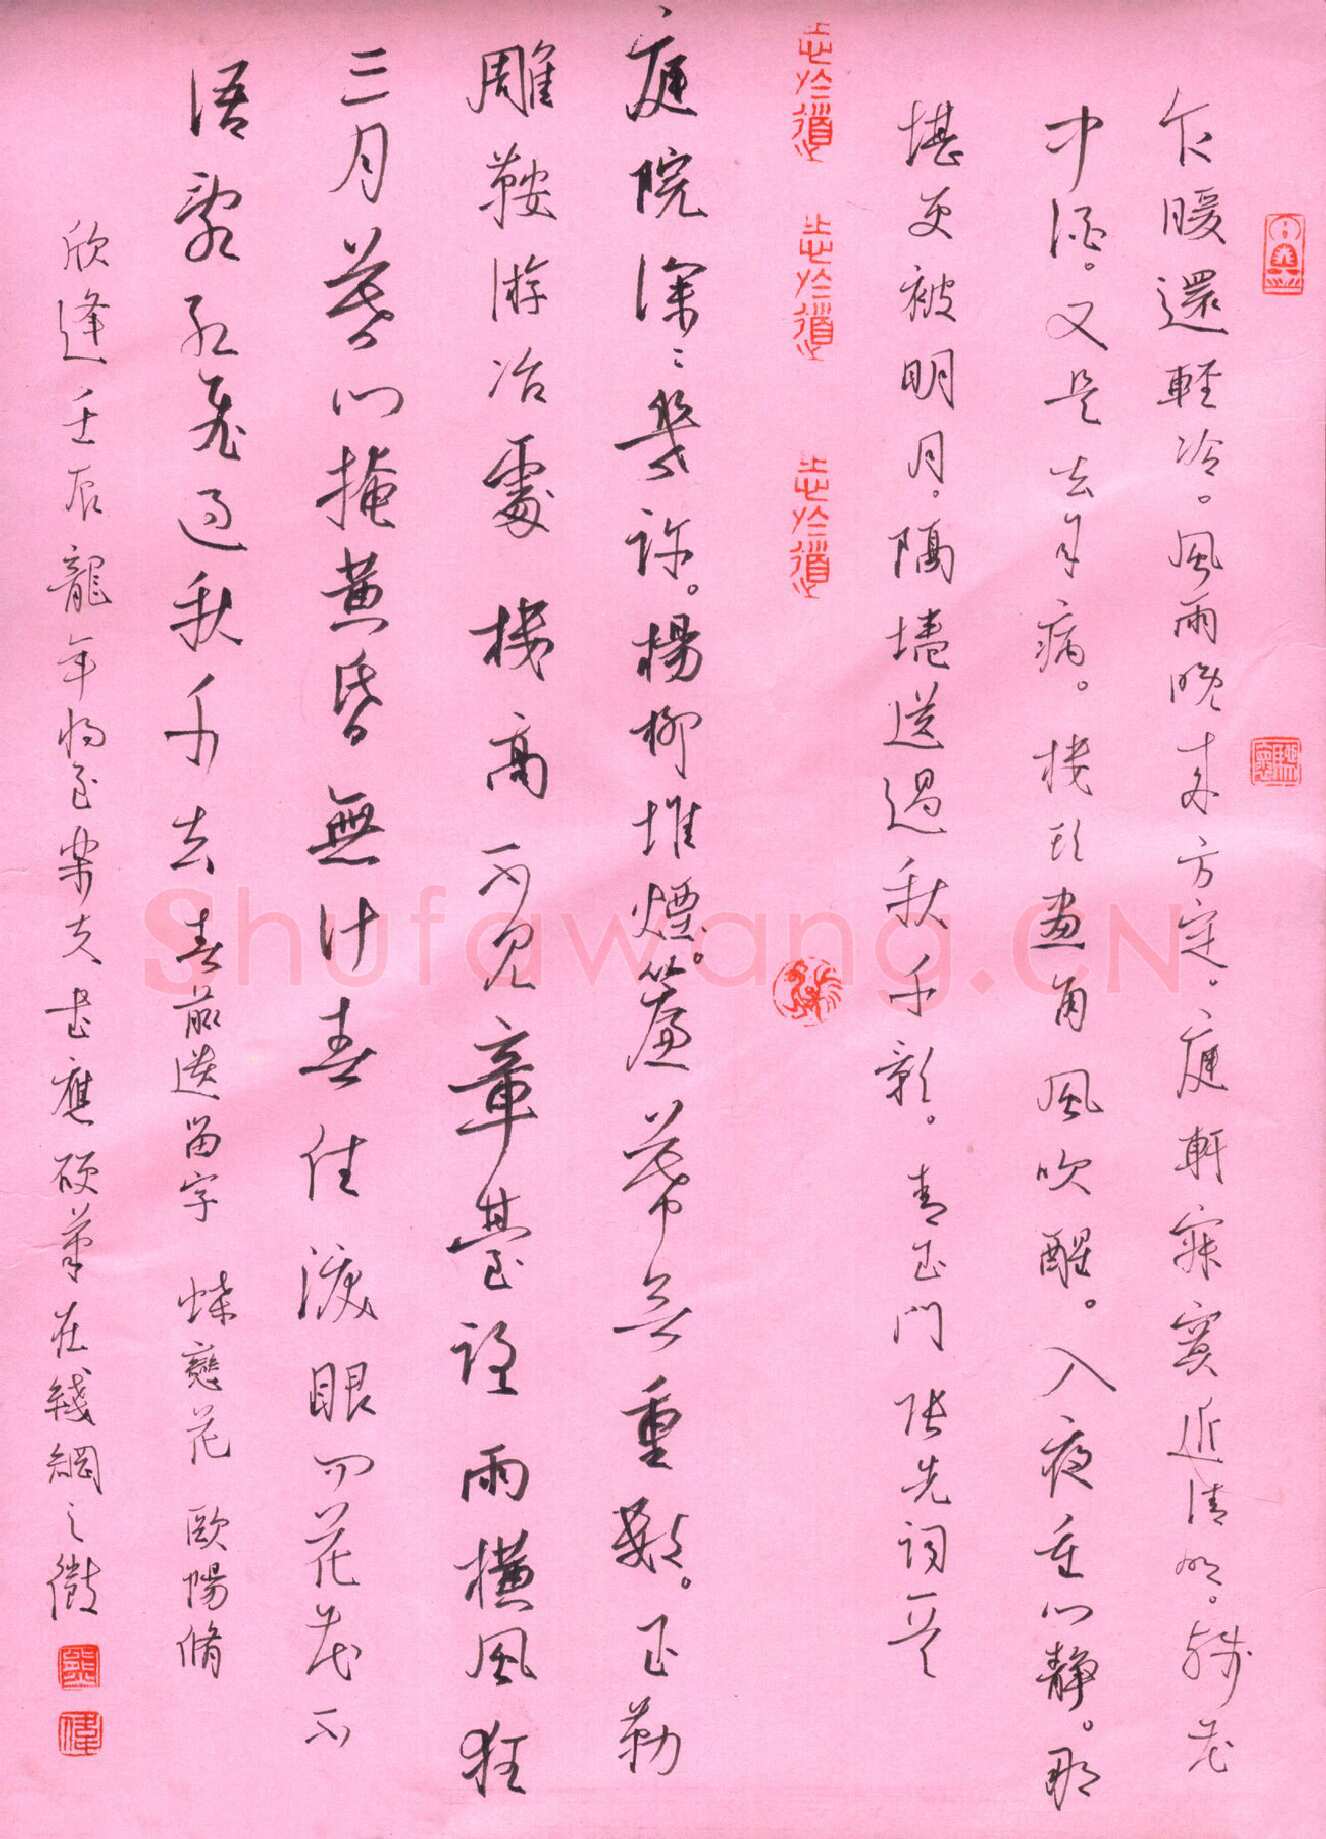 乍暖還輕冷。風雨晚來方定。庭軒寂寞近清明。殘花
中酒。又是去年病。樓頭畫角風吹醒。入夜重門靜。那
堪更被明月。隔墻送過秋千影。 青玉門 張先詞一
志於道
志於道
志於道
庭院深々幾許。楊柳堆煙。簾幕無重數。玉勒
雕鞍游冶處 樓高不見章臺路 雨橫風狂
三月暮門掩黃昏無計春住淚眼問花花不
語亂紅飛過秋千去 春前遺留字 蝶戀花 歐陽脩
欣逢壬辰龍年將至樂天書應硬筆在綫網之徵
熊
偉
Shufawang.CN